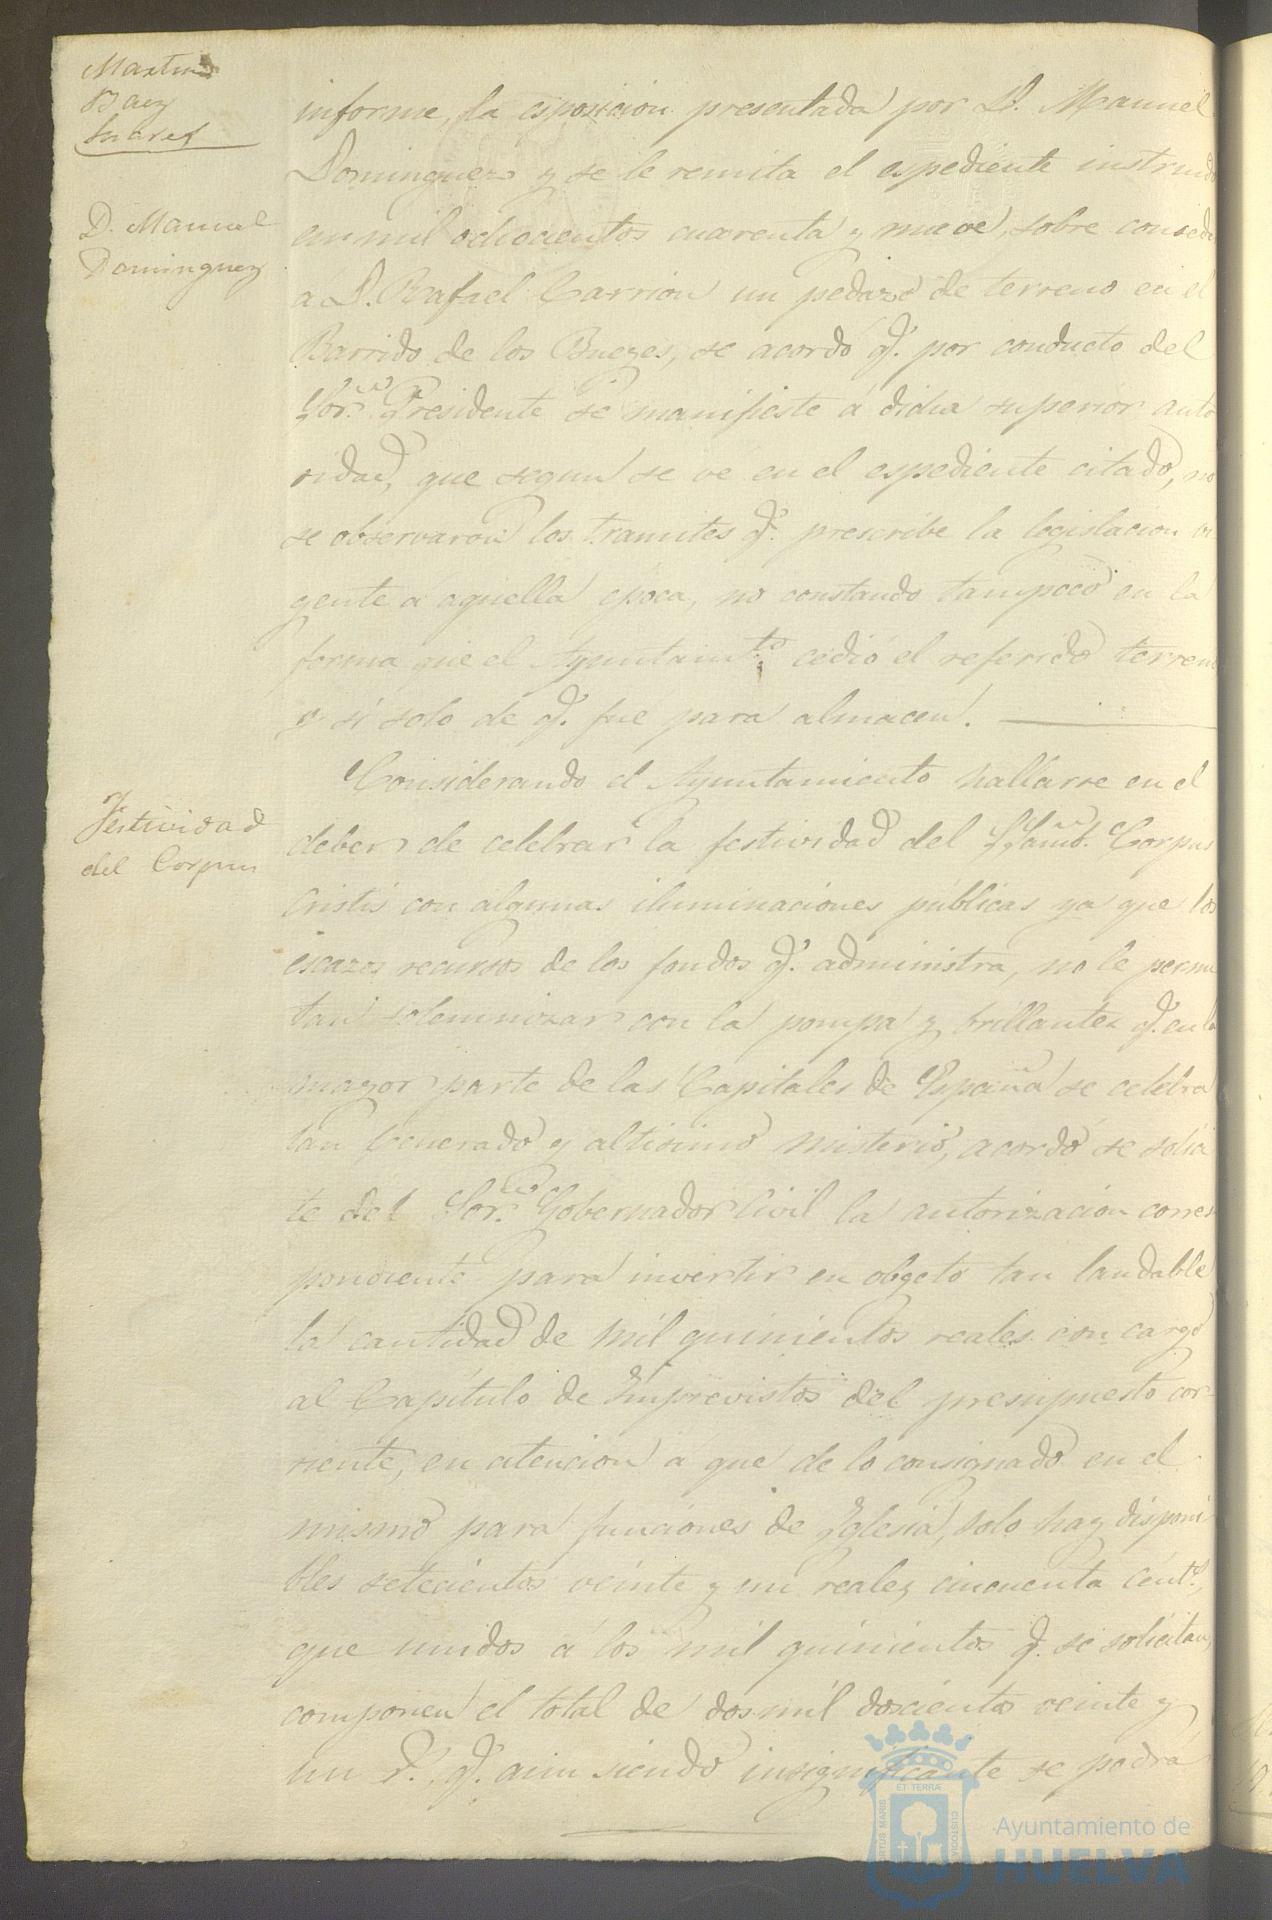 Martin
Baez
Suarez
D. Manuel
Dominguez
informe, la esposicion presentada por D. Manuel
Dominguez y se le remita el espediente instruido
en mil ochocientos cuarenta y nueve, sobre conceder
á D. Rafael Carrion un pedazo de terreno en el
Barrido de los Bueyes, se acordó q.e por conducto del
Sor. Presidente se manifieste á dicha superior auto
ridad, que segun se vé en el espediente citado, no
se observaron los tramites q.e prescribe la legislacion vi
gente á aquella época, no constando tampoco en la
forma que el Ayuntam.to cedió el referido terreno
y si solo de q.e fué para almacen.
Festividad
del Corpus
Considerando el Ayuntamiento hallarse en el
deber de celebrar la festividad del Corpus
Cristis con algunas iluminaciones públicas ya que los
escazos recursos de los fondos q.e administra, no le permi
tan solemnizar con la pompa y brillantez q.e en la
mayor parte de las Capitales de España se celebra
tan venerado y altisimo misterio, acordó se solici
te del Sor. Gobernador Civil la autorizacion corres
pondiente para invertir en obgeto tan laudable
la cantidad de mil quinientos reales con cargo
al Capítulo de Imprevistos del presupuesto cor
riente, en atencion á que de lo consignado en el
mismo para funciones de Iglesia, solo hay disponi
bles setecientos veinte y un reales cincuenta cént.s,
que unidos á los mil quinientos q.e se solicitan,
componen el total de dos mil doscientos veinte y
un r.s, q.e aun siendo insignificante se podrá
ET TERRÆ
PORTUS MARIS
CUSTODIA
Ayuntamiento de
HUELVA